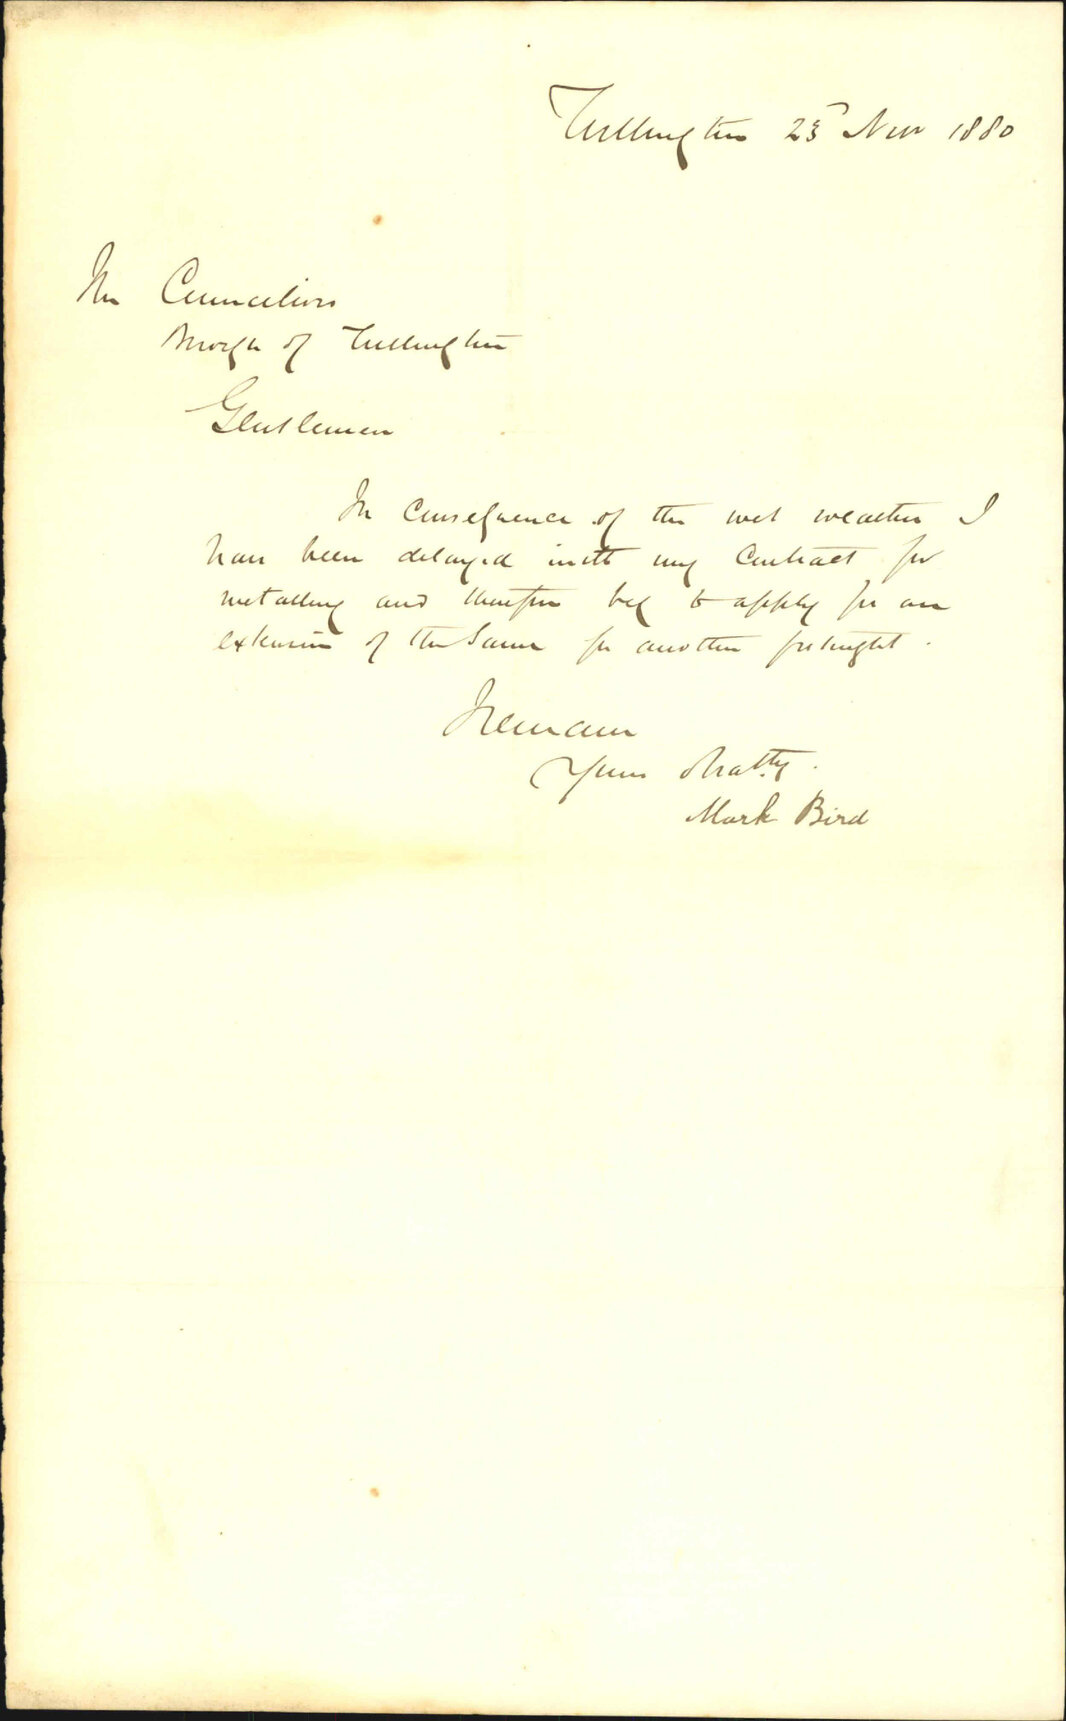 23rd Nov 1880
The Councilors
of
Gentlemen
In Consequence of the wet weather I
have been delayed with my Contract for
metalling and therefore beg to apply for an
extension of the Same for another fortnight.
I remain
Yours
Mark Bird